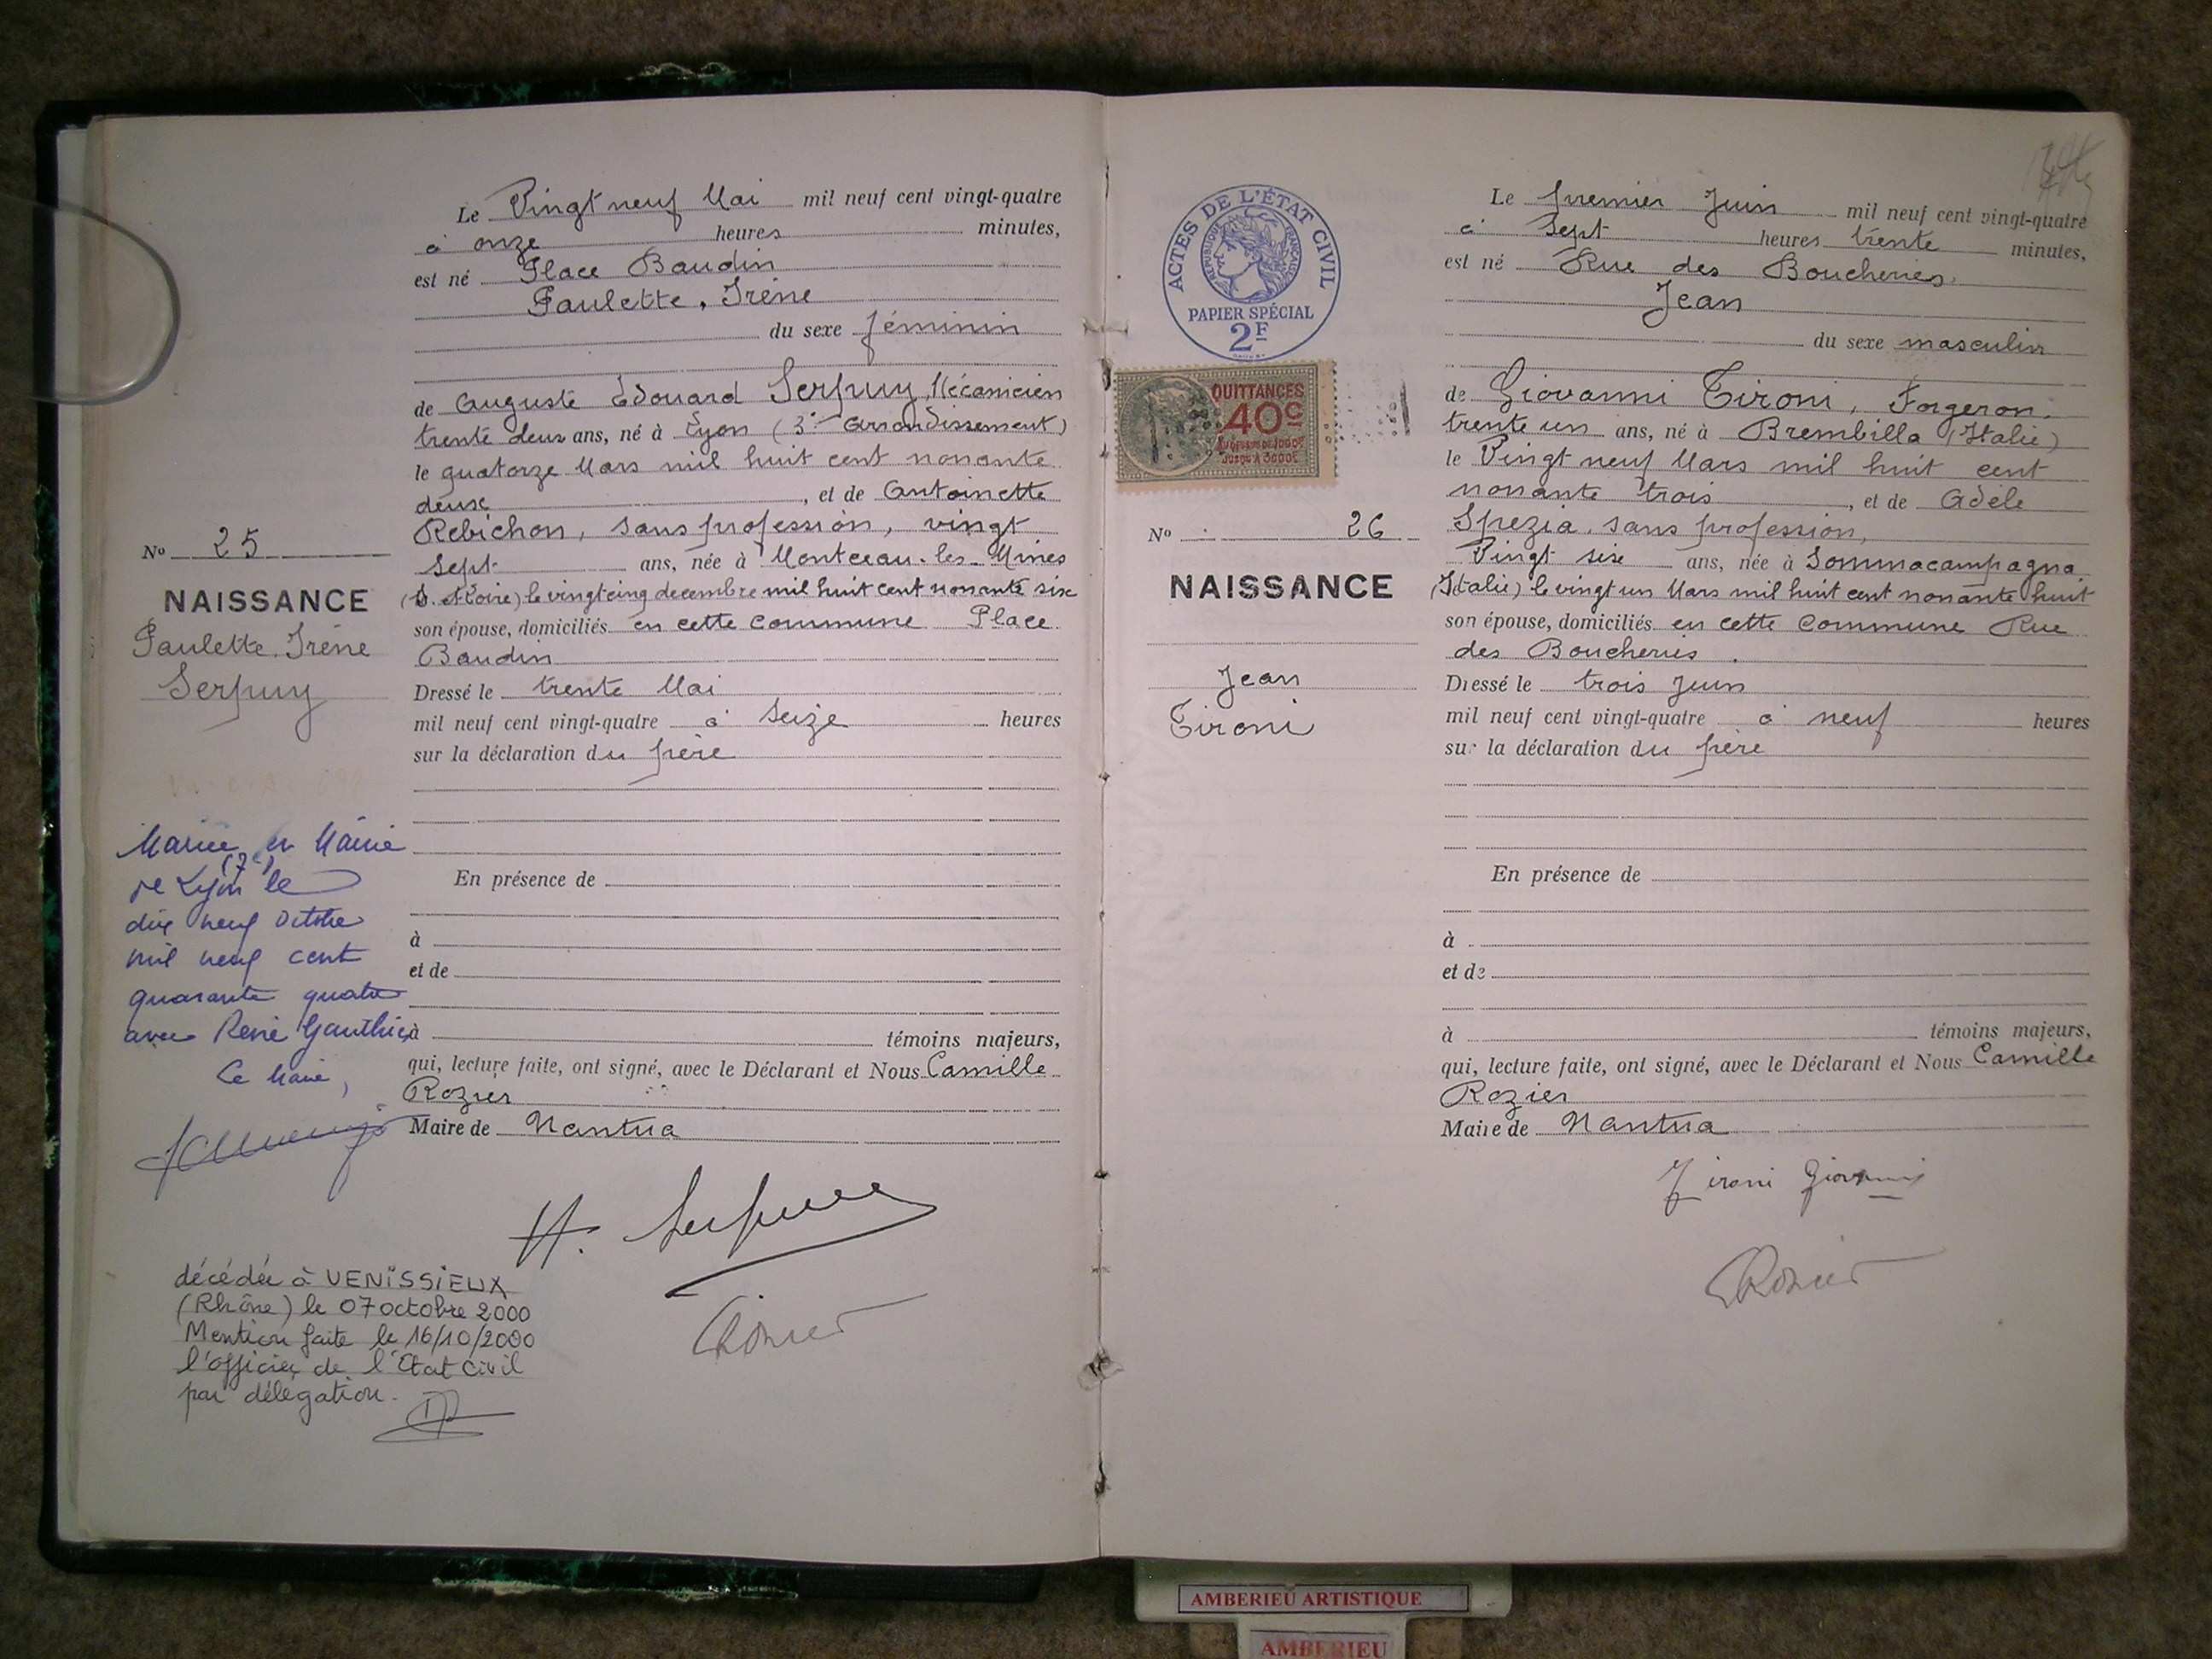 Le Vingt neuf Mai mil neuf cent vingt-quatre
à onze heures minutes,
est né Place Baudin
Paulette, Irène
du sexe féminin
de Auguste Edouard Serpuy, Mécanicien
trente deux ans, né à Lyon (3e Arrondissement)
le quatorze Mars mil huit cent nonante
deux, et de Antoinette
Rebichon, sans profession, vingt
sept ans, née à Montceau-les-Mines
(S. et Loire) le vingt cinq decembre mil huit cent nonante six
son épouse, domiciliés en cette commune Place
Baudin
Dressé le trente Mai
mil neuf cent vingt-quatre à seize heures
sur la déclaration du père
En présence de
à
et de
à témoins majeurs,
qui, lecture faite, ont signé, avec le Déclarant et Nous Camille
Rozier
Maire de Nantua
No 25
NAISSANCE
Paulette, Irène
Serpuy
Mariée en Mairie
de Lyon (7e) le
dix neuf Octobre
mil neuf cent
quarante quatre
avec René Gauthier
Le Maire,
décédée à VENISSIEUX
(Rhône) le 07 octobre 2000
Mention faite le 16/10/2000
l'officier de l'Etat Civil
par délégation.
Rozier
ACTES DE L'ÉTAT CIVIL
RÉPUBLIQUE FRANÇAISE
PAPIER SPÉCIAL
2F
QUITTANCES
40c
AU-DESSUS DE 1000F
JUSQU'À 3000F
No 26
NAISSANCE
Jean
Tironi
Le premier Juin mil neuf cent vingt-quatre
à Sept heures trente minutes,
est né Rue des Boucheries,
Jean
du sexe masculin
de Giovanni Tironi, Forgeron,
trente un ans, né à Brembilla (Italie)
le Vingt neuf Mars mil huit cent
nonante trois, et de Adèle
Spezia, sans profession,
Vingt six ans, née à Sommacampagna
(Italie) le vingt un Mars mil huit cent nonante huit
son épouse, domiciliés en cette commune Rue
des Boucheries.
Dressé le trois Juin
mil neuf cent vingt-quatre à neuf heures
sur la déclaration du père
En présence de
à
et de
à témoins majeurs,
qui, lecture faite, ont signé, avec le Déclarant et Nous Camille
Rozier
Maire de Nantua
Tironi Giovanni
Rozier
AMBERIEU ARTISTIQUE
AMBERIEU